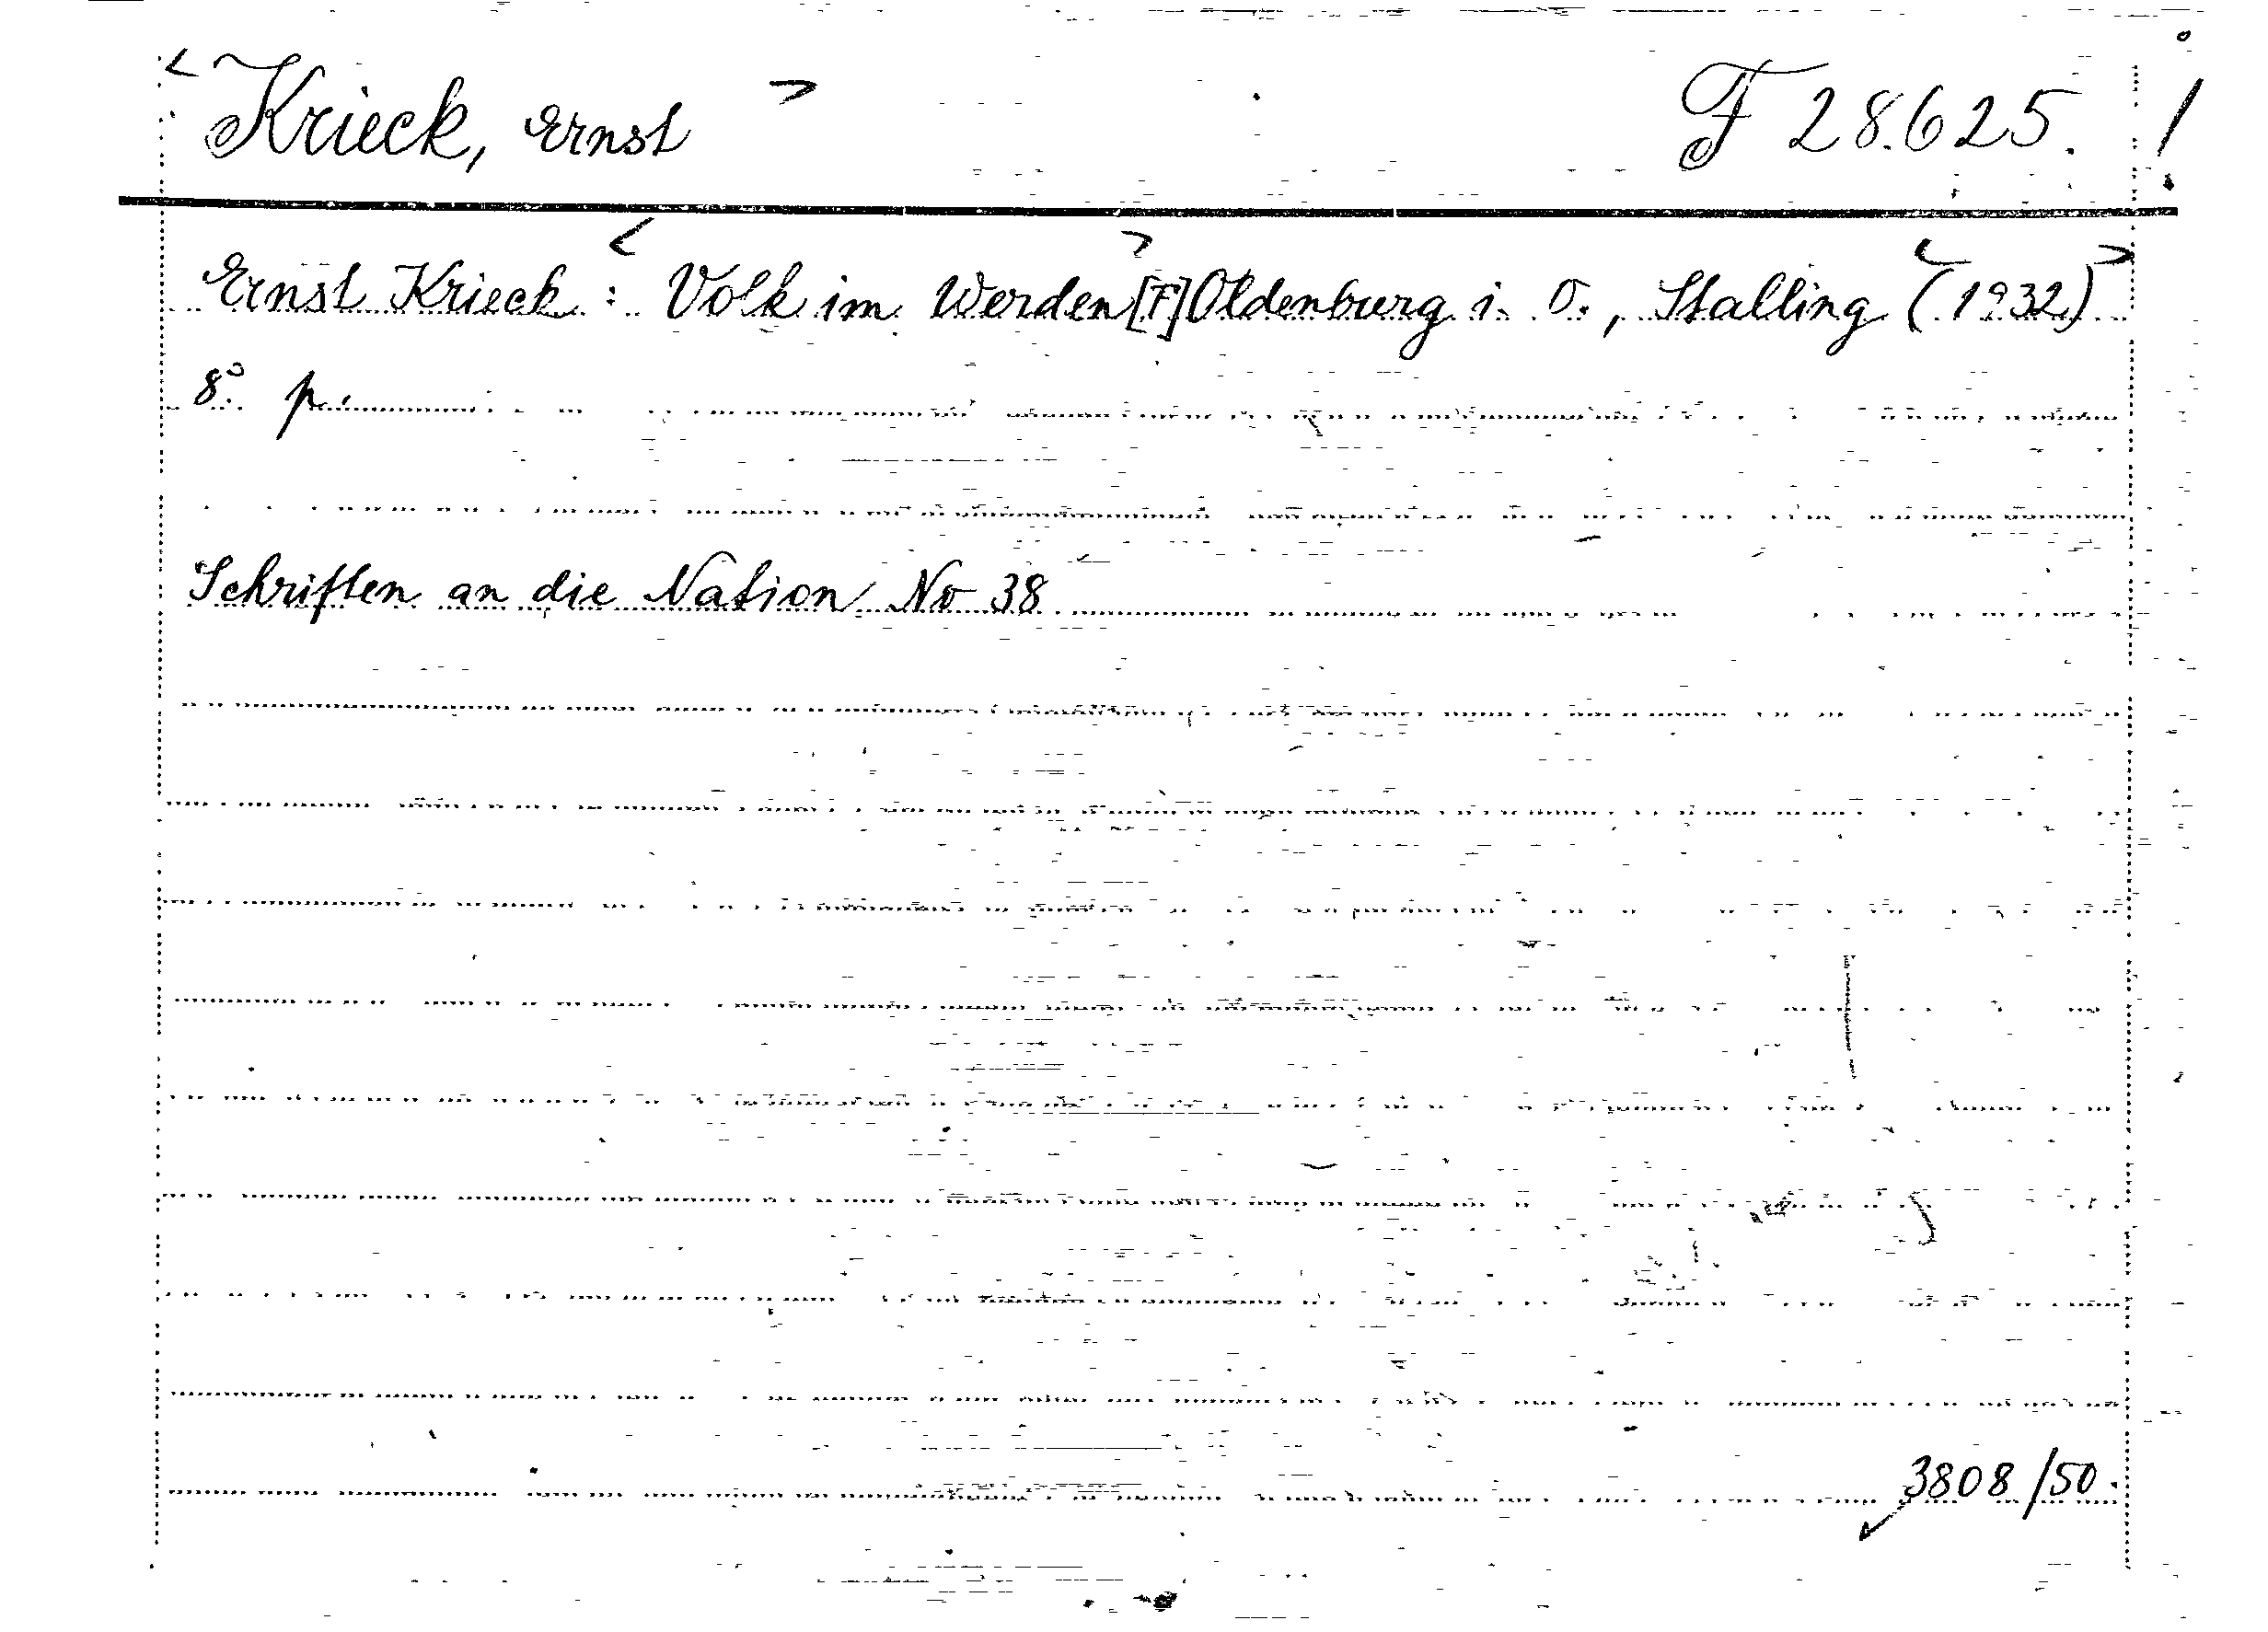 < Krieck, Ernst > F 28.625. /
Ernst Krieck : < Volk im Werden > [F] Oldenburg i. O., Stalling < (1932) >
8° p.
Schriften an die Nation No 38
3808/50.